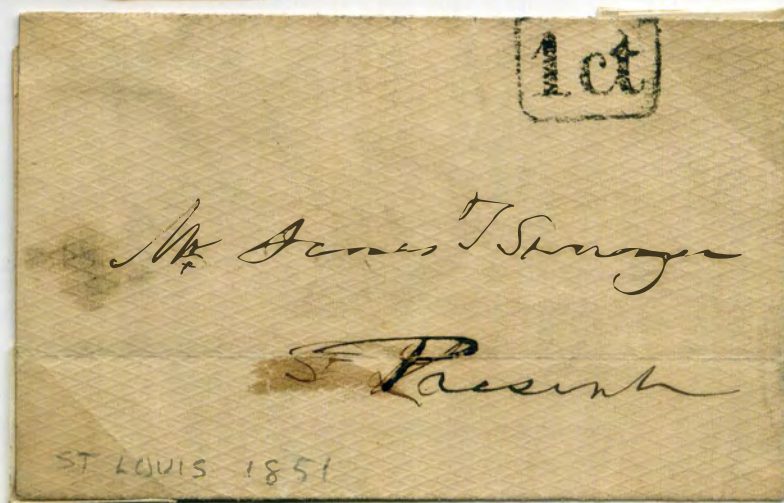 1 ct
Mr James T
Present
ST LOUIS 1851